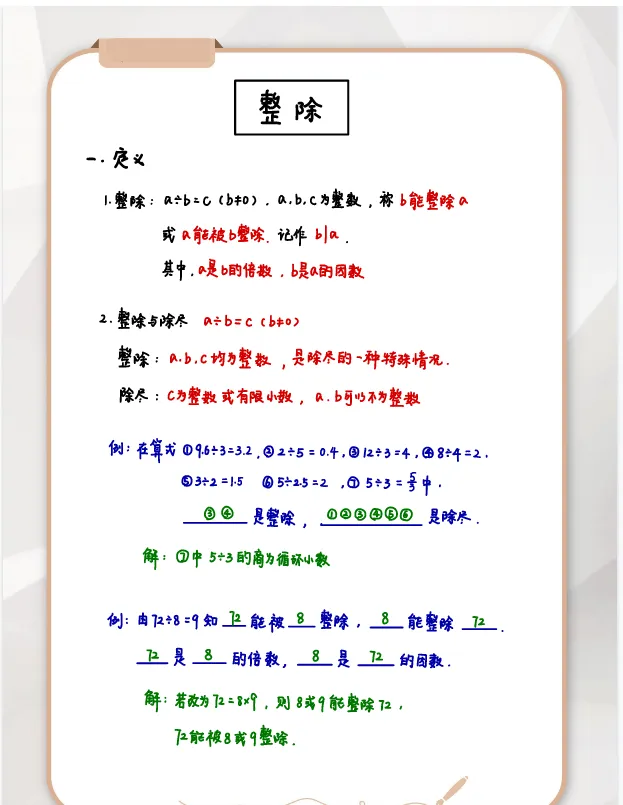 整除
一.定义
1.整除：a÷b=c（b≠0）.a.b.c为整数，称b能整除a
或a能被b整除.记作 b|a.
其中.a是b的倍数，b是a的因数
2.整除与除尽 a÷b=c（b≠0）
整除：a.b.c均为整数，是除尽的一种特殊情况.
除尽：c为整数或有限小数，a.b可以不为整数
例：在算式①9.6÷3=3.2,②2÷5=0.4,③12÷3=4,④8÷4=2.
⑤3÷2=1.5 ⑥5÷2.5=2,⑦5÷3=5/3中.
③④是整除，①②③④⑤⑥是除尽.
解：⑦中5÷3的商为循环小数
例：由72÷8=9知72能被8整除，8能整除72.
72是8的倍数，8是72的因数.
解：若改为72=8×9，则8或9能整除72.
72能被8或9整除.